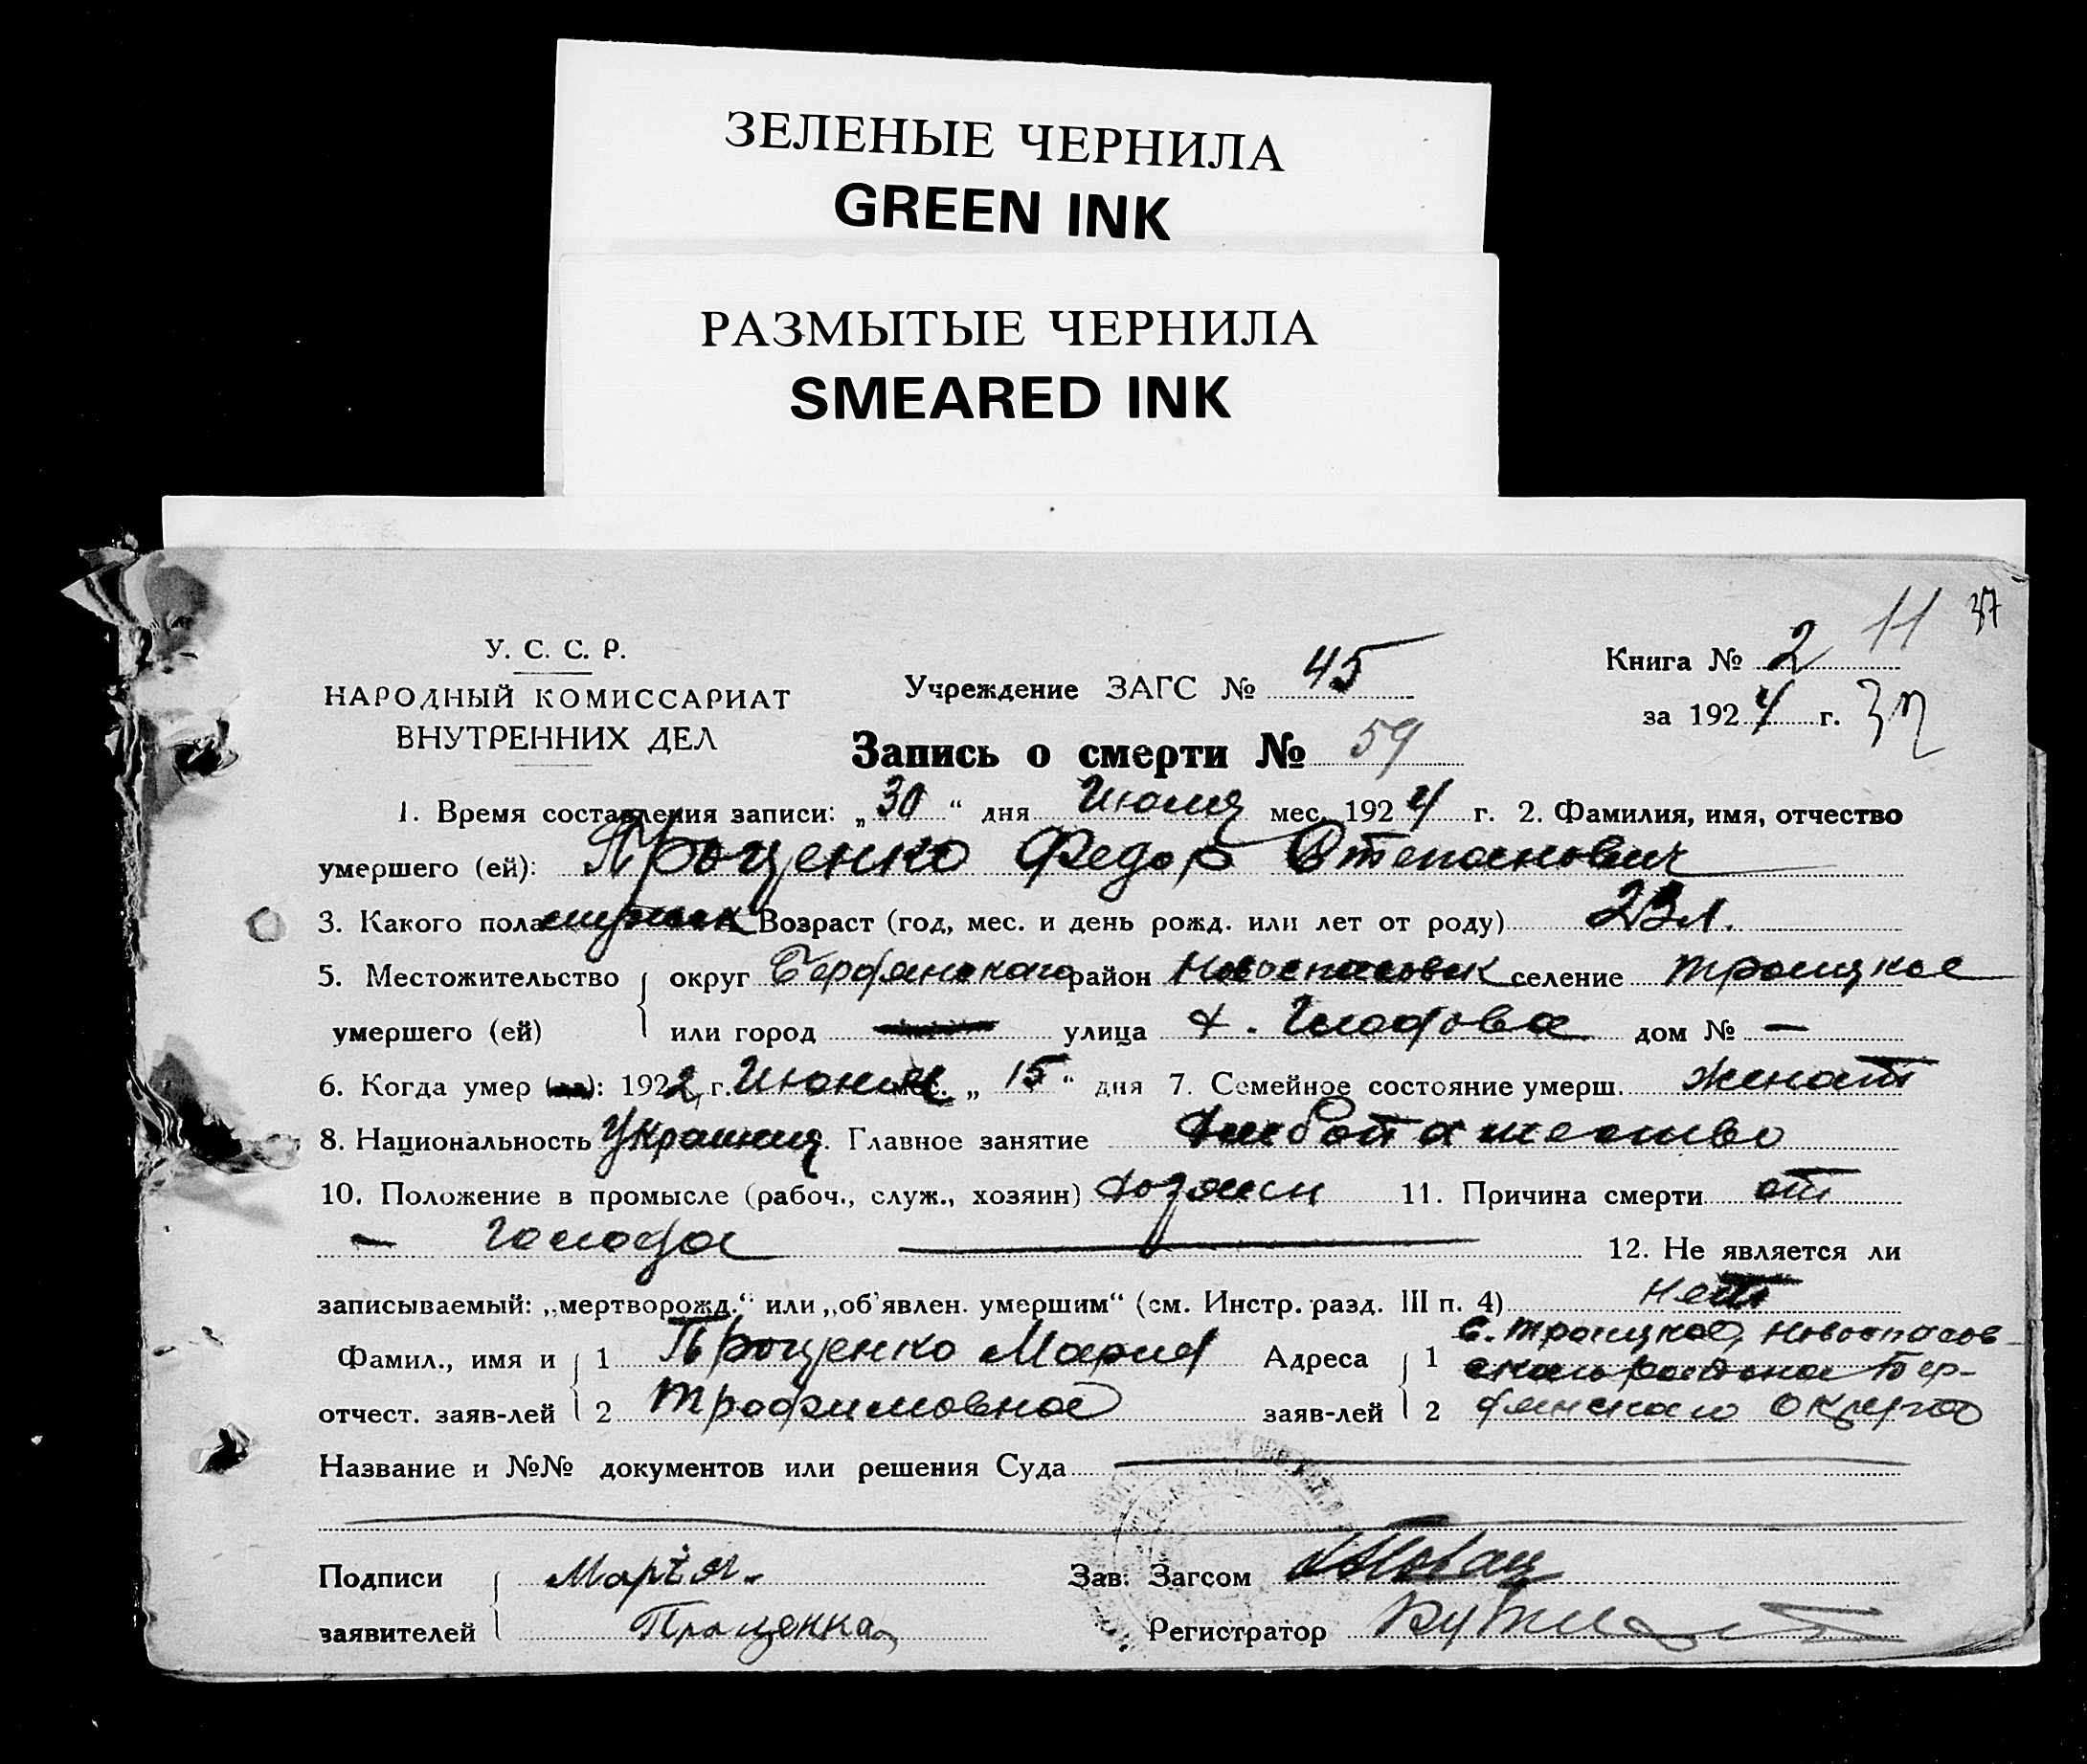 ЗЕЛЕНЫЕ ЧЕРНИЛА
GREEN INK
РАЗМЫТЫЕ ЧЕРНИЛА
SMEARED INK
11 37
У. С. С. Р.
НАРОДНЫЙ КОМИССАРИАТ
ВНУТРЕННИХ ДЕЛ
Учреждение ЗАГС № 45
Книга № 2
за 1924 г. 37
Запись о смерти № 59
1. Время составления записи: „30“ дня Июля мес. 1924 г. 2. Фамилия, имя, отчество
умершего (ей): Проценко Федор Степанович
3. Какого пола Возраст (год, мес. и день рожд. или лет от роду) 23 л.
5. Местожительство округ Бердянского район Новоспасовск селение Троицкое
умершего (ей) или город улица дом № —
6. Когда умер: 1922 г. Июня „15“ дня 7. Семейное состояние умерш. женат
8. Национальность Главное занятие хлебопашество
10. Положение в промысле (рабоч., служ., хозяин) хозяин 11. Причина смерти от
— голода 12. Не является ли
записываемый: „мертворожд.“ или „об'явлен. умершим“ (см. Инстр. разд. III п. 4) нет
Фамил., имя и 1 Проценко Мария Адреса 1 с. Троицкое, Новоспасов-
ского района Бер-
отчест. заяв-лей 2 Трофимовна заяв-лей 2 дянского округа
Название и №№ документов или решения Суда
Подписи Марія. Зав. Загсом
заявителей Проценка Регистратор